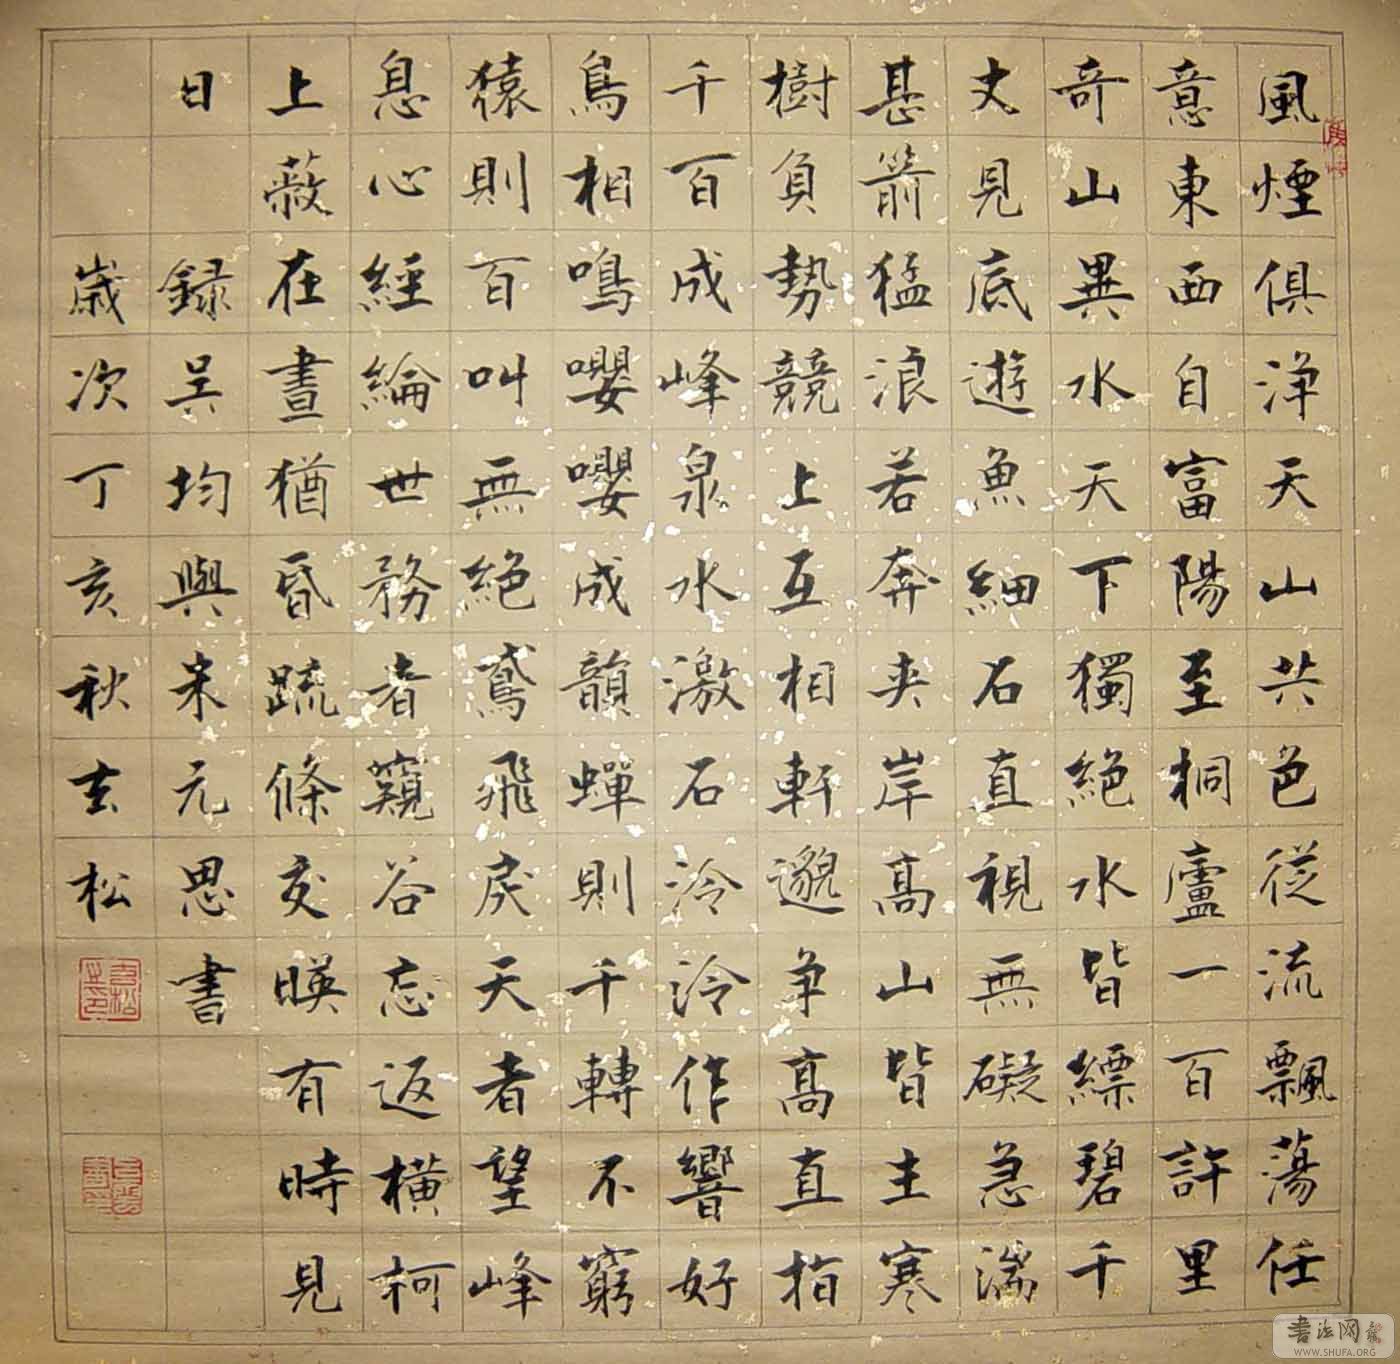 風煙俱淨天山共色從流飄蕩任
意東西自富陽至桐廬一百許里
奇山異水天下獨絕水皆縹碧千
丈見底遊魚細石直視無礙急湍
甚箭猛浪若奔夾岸高山皆生寒
樹負勢競上互相軒邈爭高直指
千百成峰泉水激石泠泠作響好
鳥相鳴嚶嚶成韻蟬則千轉不窮
猿則百叫無絕鳶飛戾天者望峰
息心經綸世務者窺谷忘返橫柯
上蔽在晝猶昏疏條交暎有時見
日 録吳均與朱元思書
歲次丁亥秋玄松
书法网
WWW.SHUFA.ORG